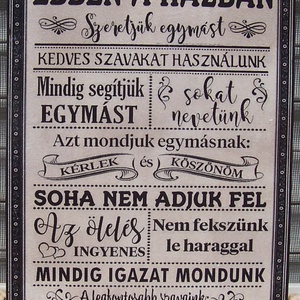 EBBEN A HÁZBAN
Szeretjük egymást
KEDVES SZAVAKAT HASZNÁLUNK
Mindig segítjük
EGYMÁST
sokat
nevetünk
Azt mondjuk egymásnak:
KÉRLEK és KÖSZÖNÖM
SOHA NEM ADJUK FEL
Az ölelés
INGYENES
Nem fekszünk
le haraggal
MINDIG IGAZAT MONDUNK
A legfontosabb szavaink: